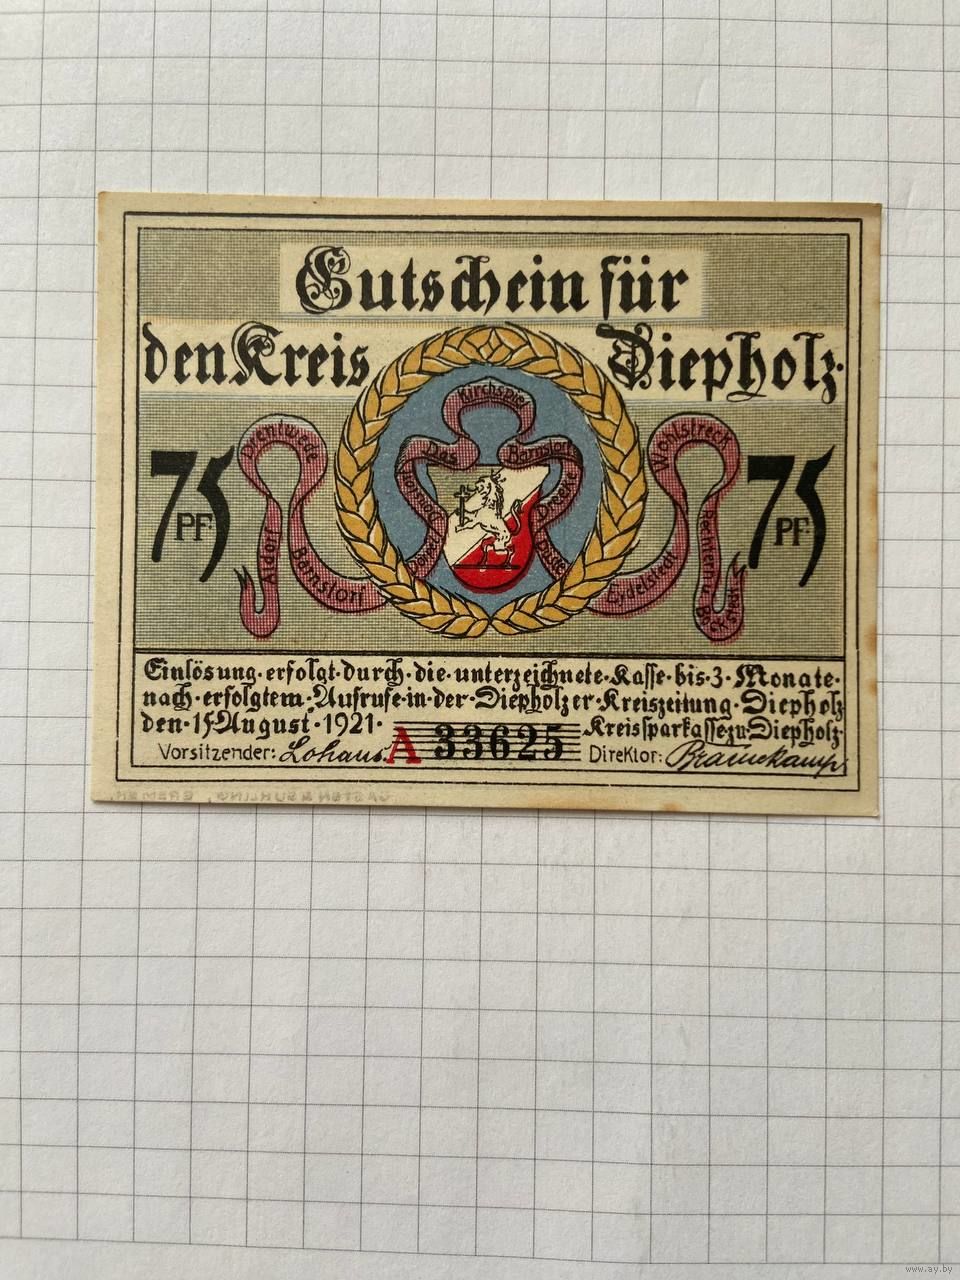 Gutschein für
den Kreis Diepholz
75 PF.
75 PF.
Drentwede
Aldorf
Barnstorf
Das Kirchspiel Barnstorf
Drebber
Wohlstreck
Eydelstedt
Rechtern u.
Einlösung·erfolgt·durch·die·unterzeichnete·Kasse·bis·3·Monate·
nach·erfolgtem·Aufrufe·in·der·Diepholzer·Kreiszeitung·Diepholz
den·15·August·1921· Kreissparkasse zu Diepholz
Vorsitzender: Lohaus. A 33625 Direktor:
www.ay.by